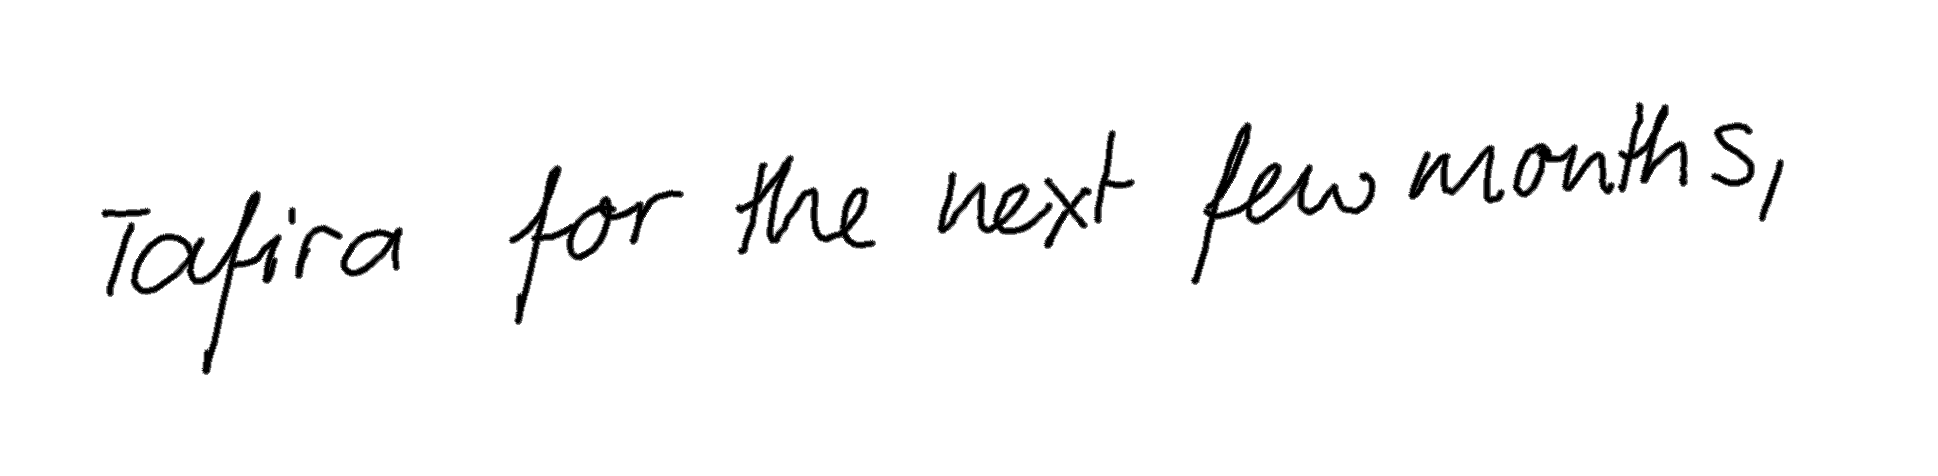 Tafira for the next few months,